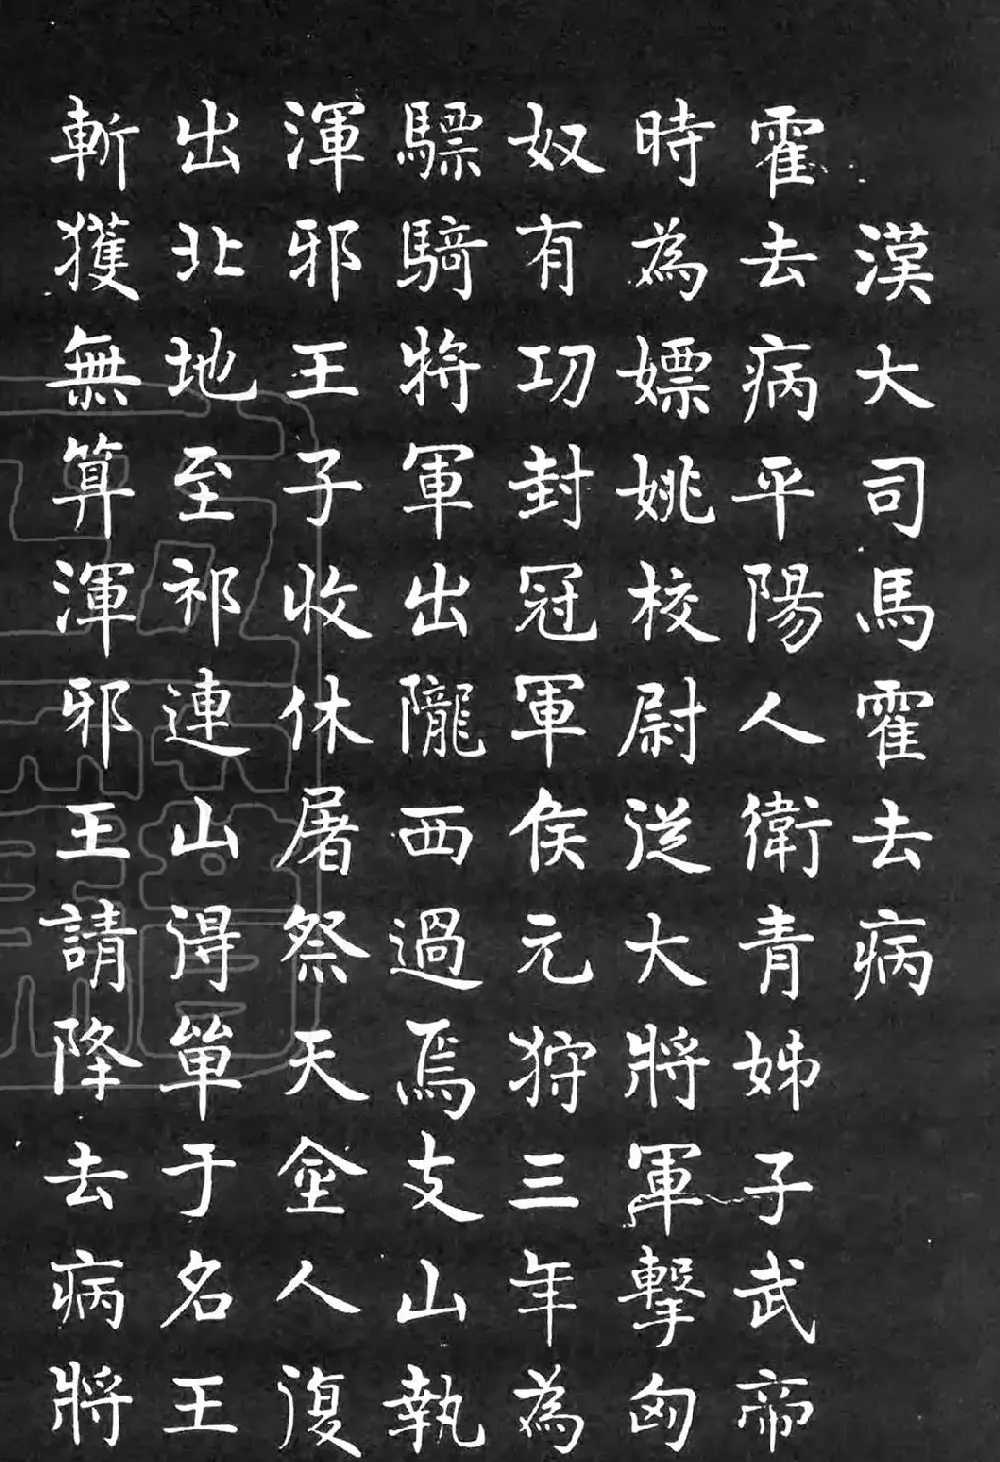 漢大司馬霍去病
霍去病平陽人衛青姊子武帝
時為嫖姚校尉從大將軍擊匈
奴有功封冠軍侯元狩三年為
驃騎將軍出隴西過焉支山執
渾邪王子收休屠祭天金人復
出北地至祁連山得單于名王
斬獲無算渾邪王請降去病將